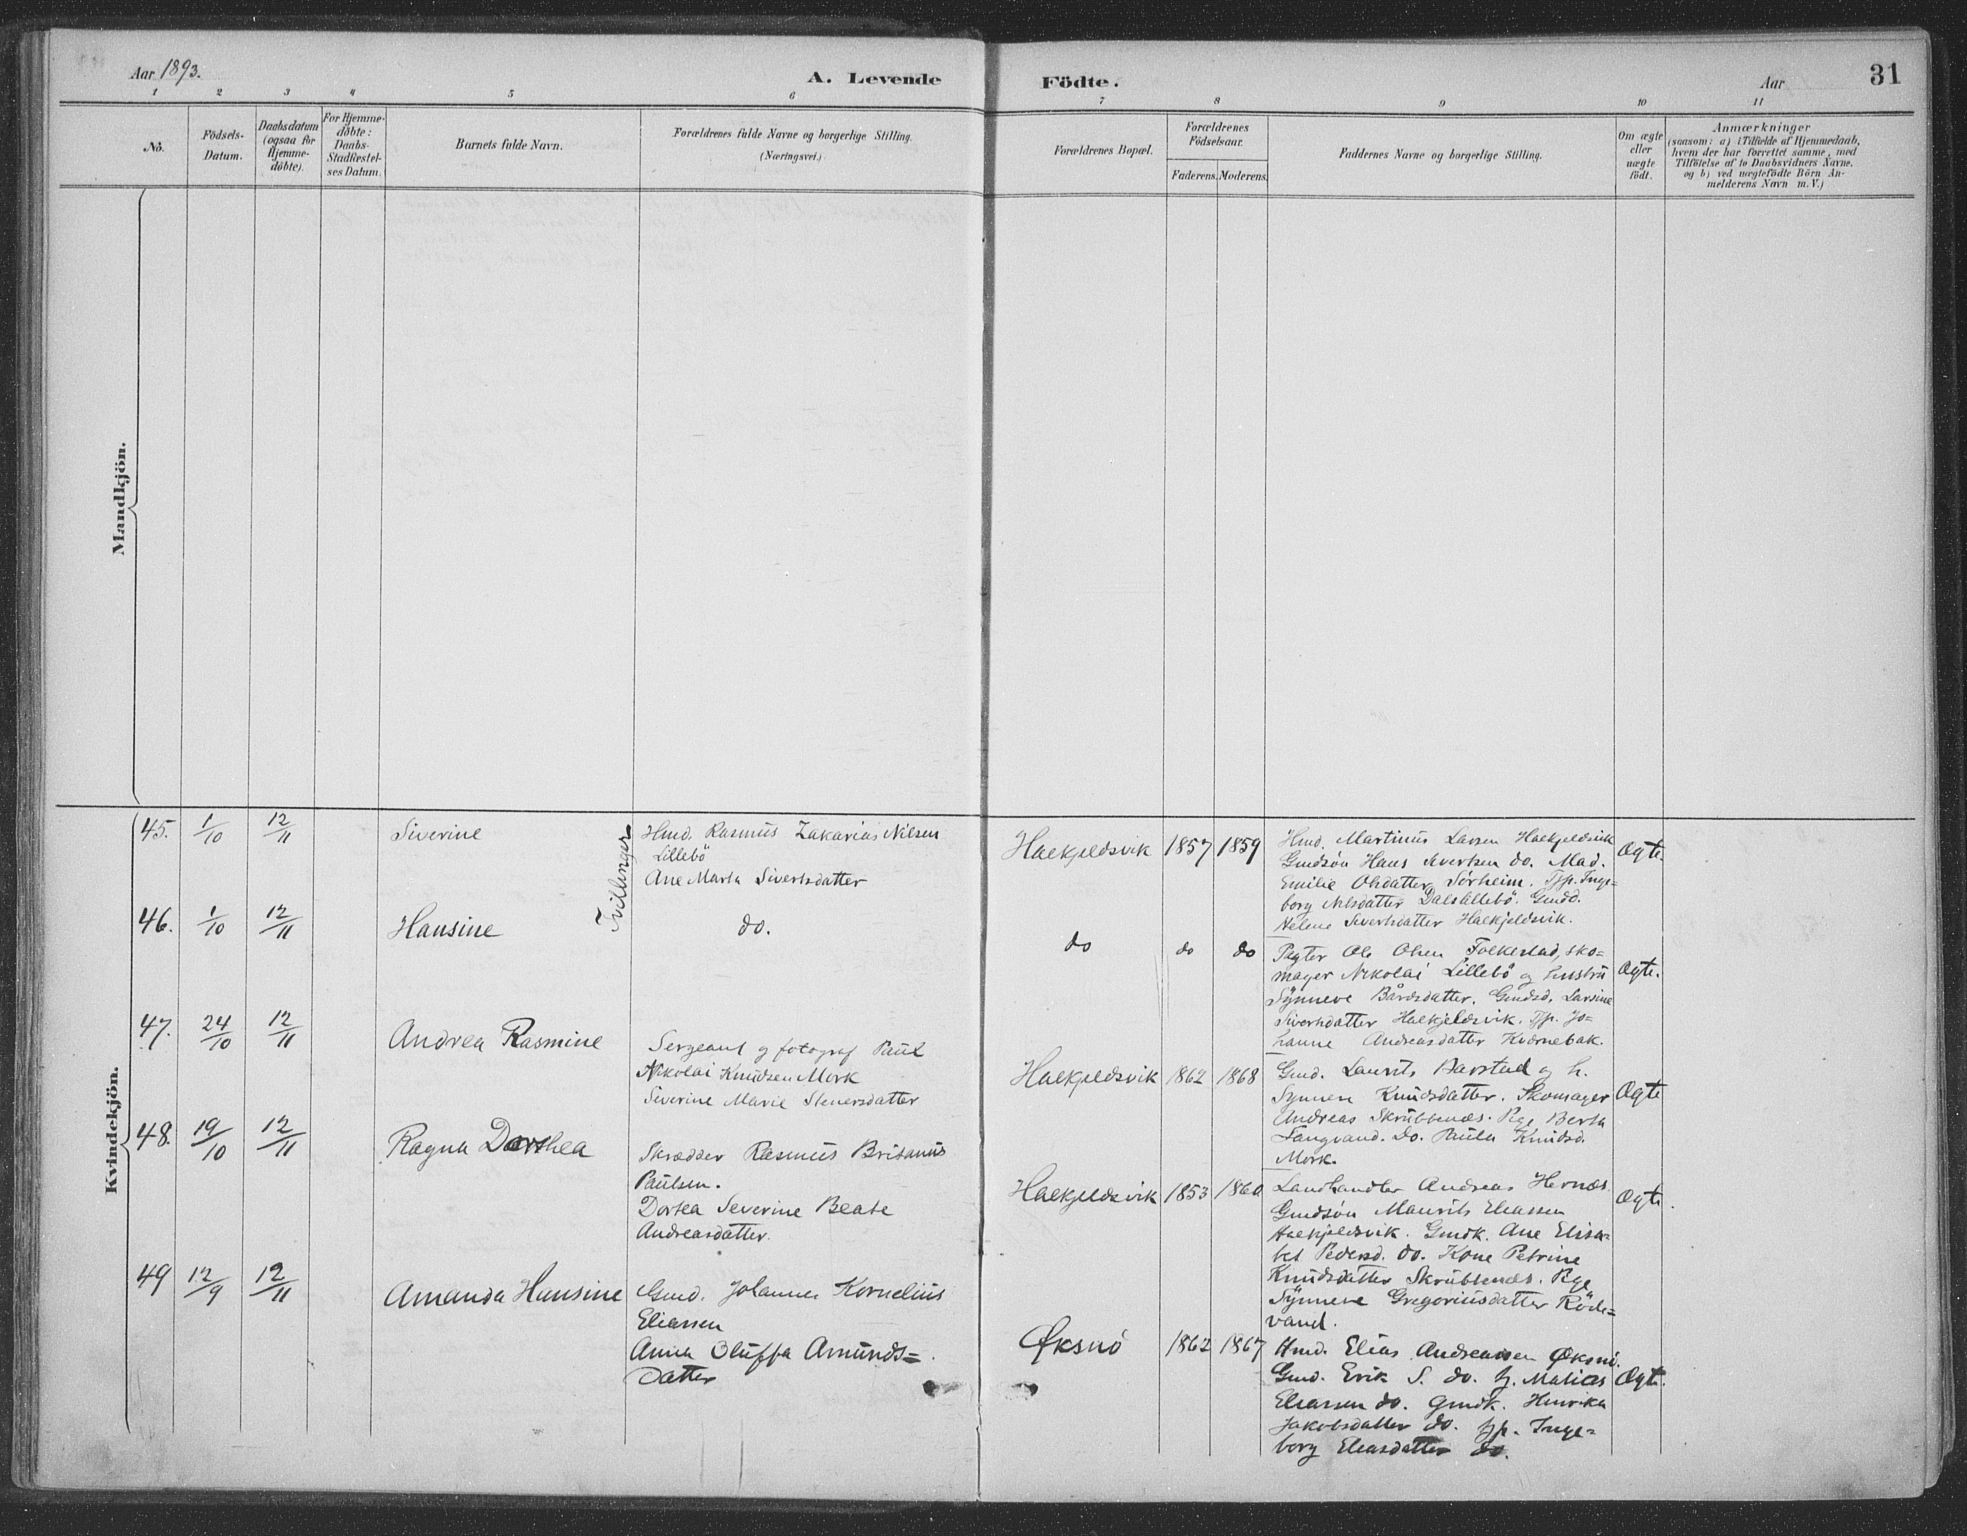 Aar 1893.
A. Levende
Födte.
Aar
31
1 2 3 4 5 6 7 8 9 10 11
No.
Födsels-
Datum.
Daabsdatum
(ogsaa for
Hjemme-
döbte).
For Hjemme-
döbte:
Daabs-
Stadfæstel-
ses Datum.
Barnets fulde Navn.
Forældrenes fulde Navne og borgerlige Stilling.
(Næringsvei.)
Forældrenes Bopæl.
Forældrenes
Födselsaar.
Faderens. Moderens.
Faddernes Navne og borgerlige Stilling.
Om ægte
eller
uægte
födt.
Anmærkninger
(saasom: a) i Tilfælde af Hjemmedaab,
hvem der har forrettet samme, med
Tilföielse af to Daabsvidners Navne,
og b) ved uægtefödte Börn An-
melderens Navn m. V.)
Mandkjön.
Kvindekjön.
45. 1/10 12/11 Siverine
Tvillinger
Hmd. Rasmus Zakarias Nilsen
Lillebö
Ane Marta Sivertsdatter
Haekjeldsvik 1857 1859
Hmd. Martinus Larsen Haekjeldsvik
Gmdsön Hans Sivertsen do. Mad.
Emilie Olsdatter Sörheim. Tjp. Inge-
borg Nilsdatter Dalslillebö. Gmdd.
Helene Sivertsdatter Haekjeldsvik.
Ægte.
46. 1/10 12/11 Hansine
do.
do do do
Pagter Ole Olsen Folkestad, sko-
mager Nikolai Lillebö og hustru
Synneve Bårdsdatter. Gmdsd. Larsine
Sivertsdatter Haekjeldsvik. Tjp. Jo-
hanne Andreasdatter Kvernebak.
Ægte.
47. 24/10 12/11 Andrea Rasmine
Sergeant og fotograf Paul
Nikolai Knudsen Mork
Siverine Marie Steversdatter
Haekjeldsvik 1862 1868
Gmd. Laurits Barstad og h.
Synneve Knudsdatter. Skomager
Andreas Skrubbenæs. Pge Berta
Langvand. do. Paula Knudsd.
Mork.
Ægte
48. 19/10 12/11 Ragna Dorthea
Skrædder Rasmus Brisanus
Paulsen.
Dortea Severine Beate
Andreasdatter.
Haekjeldsvik 1853 1860
Landhandler Andreas Hernæs
Gmdsön Maurits Eliassen
Haekjeldsvik. Gmdk. Ane Elisa-
bet Pedersd. do. Kone Petrine
Knudsdatter Skrubbenæs. Pge
Synneve Gregoriusdatter Röde-
vand.
Ægte.
49 12/9 12/11 Amanda Hansine
Gmd. Johannes Kornelius
Eliassen
Anna Oluffa Amunds-
datter
Øksnö 1862 1867
Hmd. Elias Andreassen Øksnö.
Gmd. Erik S. do. Tj. Matias
Eliassen do. Gmdk. Henrika
Jakobsdatter do. Tjp. Inge-
borg Eliasdatter do.
Ægte.